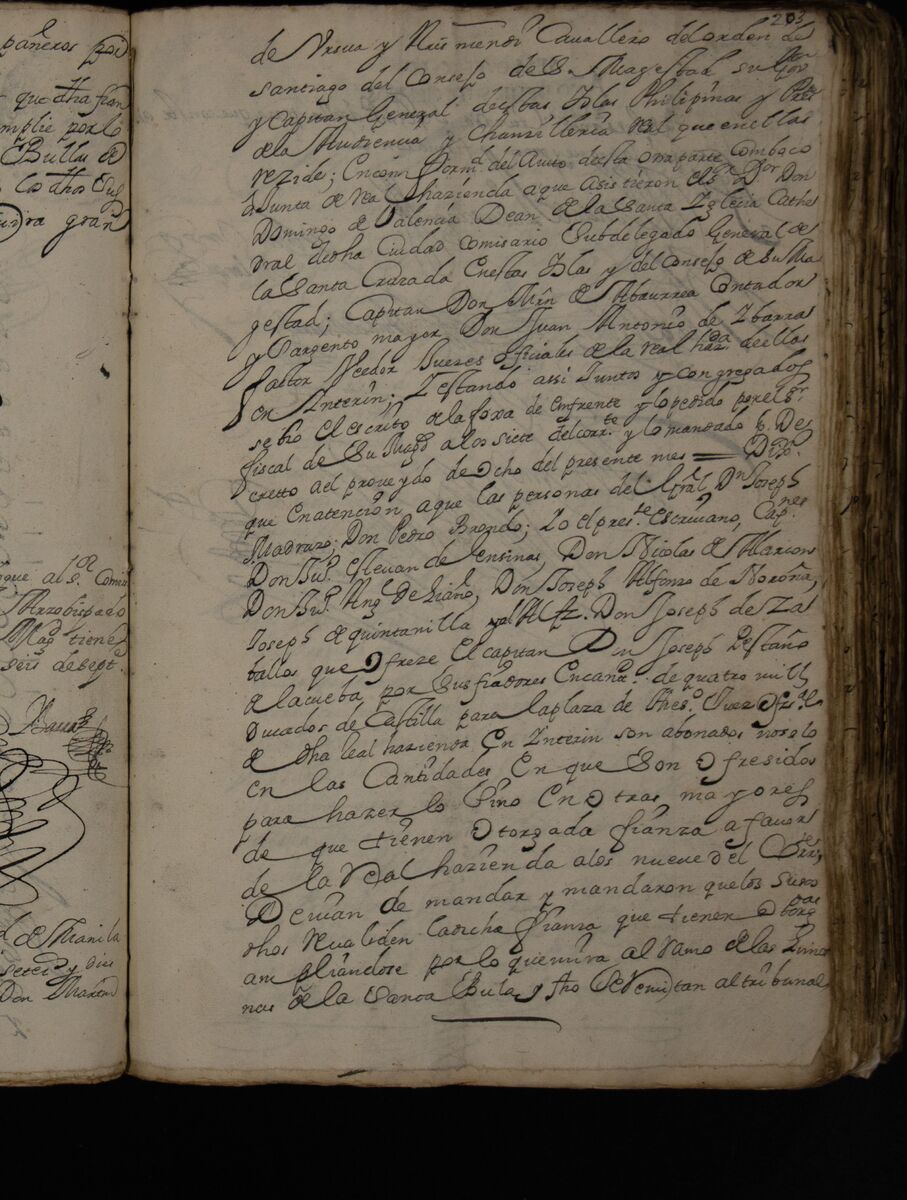 pañeros por
que dha fian
mplie por lo
Bullas de
los dhos Suj
gran
oque al s.or Comis
Arzobispado
Mag.d tiene
seis de sept.e
de Manila
setec.s y dies
Don Martin
203
de Vrsua y Arismendi Cauallero del orden de
santiago del Consejo de Su Magestad su Gov.or
y Capitan General destas Islas Philipinas y Press.te
de la Audiencia y Chanzilleria Real que en ellas
rezide; En conformd. del Auto desta otra parte comboco
á Junta de Real hazienda a que asistieron el S.r D.or Don
Domingo de Valencia Dean de la Santa Yglecia Cathe
dral desta Ciudad Comisario Subdelegado General de
la Santa Cruzada En estas Islas y del Consejo de Su Ma
gestad; Capitan Don Mrn de Aburrea Contador
y Sargento mayor Don Juan Antonio de Ibarra
factor Veedor Juezes ofisiales de la real haz.da dellas
en Interin; Y estando assi Juntos y congregados
se bio el escrito de la foxa de enfrente y lo pedido por el S.r
fiscal de Su Mag.d a los siete del corr.te y lo mandado p.r De
cretto ael proveydo de ocho del presente mes = Dix.n
que En atencion a que las personas del Gral D.n Joseph
Madrazo; Don Pedro Brondo; Yo el pres.te Escriuano, Cap.nes
Don Ju.o Esteuan de ensinas, Don Nicolas de Alarcon
Don Ju.o Ang.l de Liaño, Don Joseph Alfonso de Noroña,
Joseph de quintanilla y al Alf.z Don Joseph de Za
ballos que Ofreze El capitan D.n Joseph Destaño
de la cueba por Sus fiadores En cant.d de quatro mill
ducados de Castilla para la plaza de thes.o Juez ofisi.l
de dha leal hazienda En Interin son abonados no solo
en las Cantidades En que Son Ofresidos
para hazer lo Sino En Otras mayores
de que tienen Otorgada fianza a fauor
de la Real hazienda a los nueue del Corr.te
Deuian de mandar y mandaron que los Suso
dhos Reualiden la dicha fianza que tienen Otorg.da
ampliandose por lo que mira al Ramo de las Limos
nas de la Santa Bula, y fho Se Remitan al tribunal